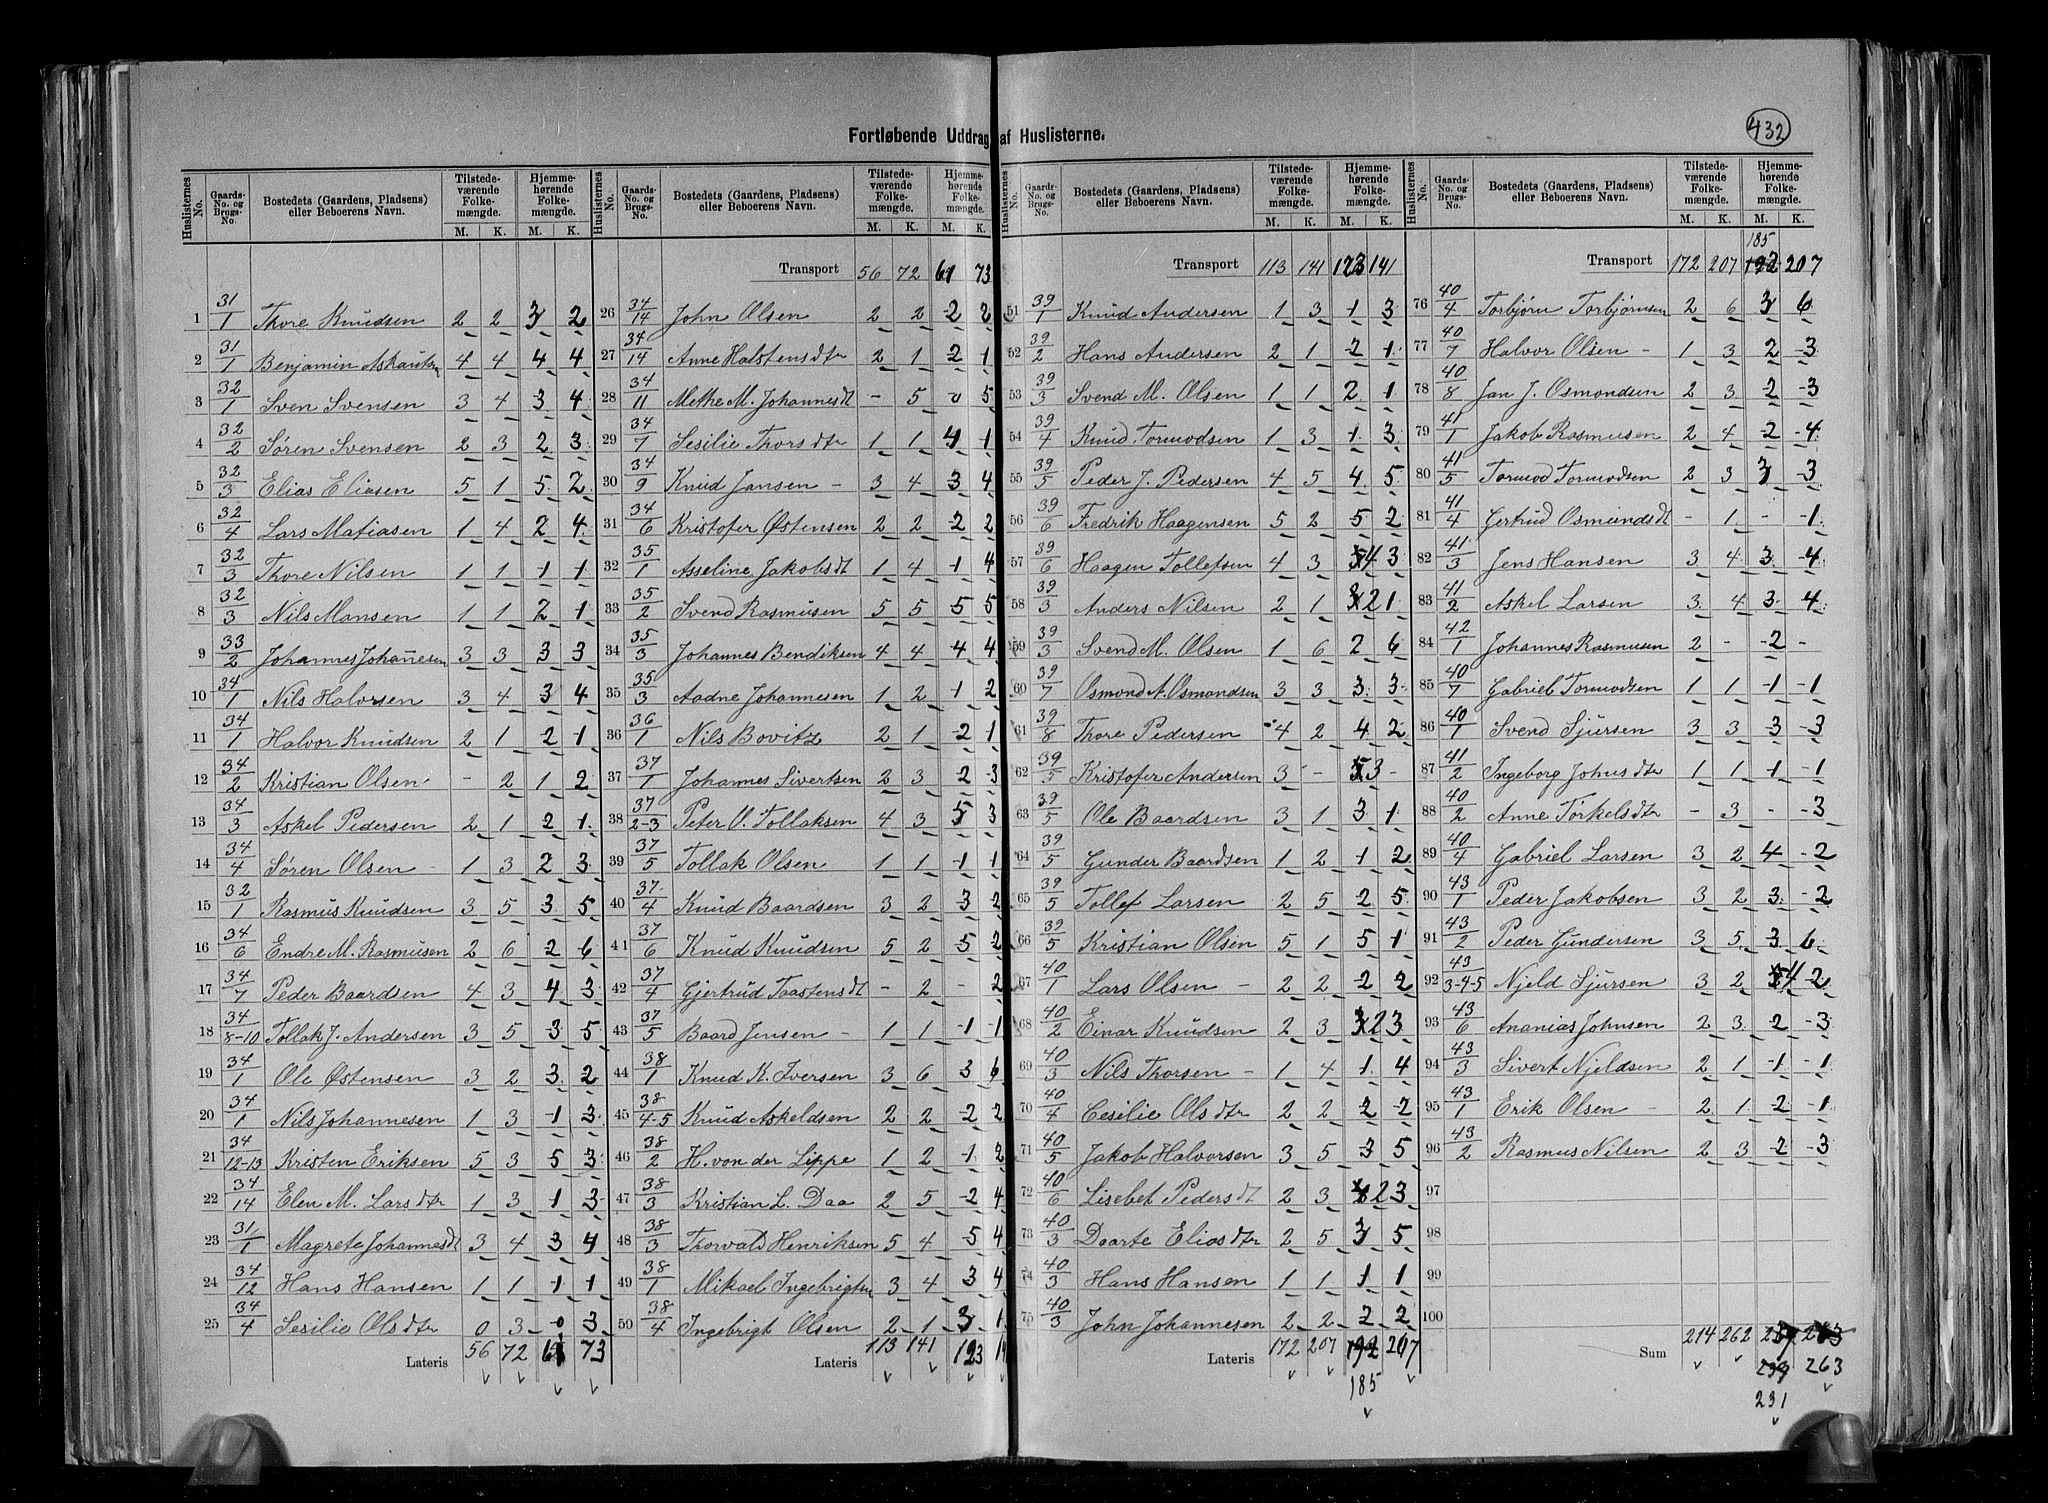 432
Fortløbende Uddrag af Huslisterne.
Huslisternes No. | Gaards-No. og Brugs-No. | Bostedets (Gaardens, Pladsens) eller Beboerens Navn. | Tilstedeværende Folkemængde. M. K. | Hjemmehørende Folkemængde. M. K.
1 31/1 Thore Knudsen 2 2 3 2
2 31/1 Benjamin 4 4 4 4
3 32/1 Sven Svensen 3 4 3 4
4 32/2 Søren Svensen 2 3 2 3
5 32/3 Elias Eliasen 5 1 5 2
6 32/4 Lars Matiasen 1 4 2 4
7 32/3 Thore Nilsen 1 1 1 1
8 32/3 Nils Monsen 1 1 2 1
9 33/2 Johannes Johannesen 3 3 3 3
10 34/1 Nils Halvorsen 3 4 3 4
11 34/1 Halvor Knudsen 2 1 2 1
12 34/2 Kristian Olsen - 2 1 2
13 34/3 Askel Pedersen 2 1 2 1
14 34/4 Søren Olsen 1 3 2 3
15 32/1 Rasmus Knudsen 3 5 3 5
16 34/6 Endre M. Rasmusen 2 6 2 6
17 34/7 Peder Baardsen 4 3 4 3
18 34/8-10 Tollak J. Andersen 3 5 3 5
19 34/1 Ole Østensen 3 2 3 2
20 34/1 Nils Johannesen 1 3 1 3
21 34/12-13 Kristen Eriksen 5 3 5 3
22 34/14 Elen M. Larsdtr 1 3 1 3
23 31/1 Magrete Johannesdt 3 4 3 4
24 34/12 Hans Hansen 1 1 1 1
25 34/4 Sesilie Olsdtr 0 3 0 3
Lateris 56 72 61 73
Huslisternes No. | Gaards-No. og Brugs-No. | Bostedets (Gaardens, Pladsens) eller Beboerens Navn. | Tilstedeværende Folkemængde. M. K. | Hjemmehørende Folkemængde. M. K.
Transport 56 72 61 73
26 34/14 John Olsen 2 2 2 2
27 34/14 Anne Halstensdtr 2 1 2 1
28 34/11 Methe M. Johannesdt - 5 0 5
29 34/7 Sesilie Thorsdtr 1 1 1
30 34/9 Knud Jansen - 3 4 3 4
31 34/6 Kristofer Østensen 2 2 2 2
32 35/1 Asseline Jakobsdt 1 4 1 4
33 35/2 Svend Rasmusen 5 5 5 5
34 35/3 Johannes Bendiksen 4 4 4 4
35 35/3 Aadne Johannesen 1 2 1 2
36 36/1 Nils Bovitz 2 1 2 1
37 37/1 Johannes Sivertsen 2 3 2 3
38 37/2-3 Peter V. Tollaksen 4 3 5 3
39 37/5 Tollak Olsen 1 1 1 1
40 37/4 Knud Baardsen 3 2 3 2
41 37/6 Knud Knudsen 5 2 5 2
42 37/4 Gjertrud Taastensdt - 2 - 2
43 37/5 Baard Jensen - 1 1 1 1
44 38/1 Knud K. Iversen 3 6 3 6
45 38/4-5 Knud Askeldsen 2 2 2 2
46 38/2 H. von der Lippe 1 2 1 2
47 38/3 Kristian L. Daa 2 5 2 4
48 38/3 Thorvald Henriksen 5 4 5 4
49 38/1 Mikael Ingebrigtsn 3 4 3 4
50 38/4 Ingebrigt Olsen 2 1 3 1
Lateris 113 141 123 14
Huslisternes No. | Gaards-No. og Brugs-No. | Bostedets (Gaardens, Pladsens) eller Beboerens Navn. | Tilstedeværende Folkemængde. M. K. | Hjemmehørende Folkemængde. M. K.
Transport 113 141 123 141
51 39/1 Knud Andersen 1 3 1 3
52 39/2 Hans Andersen 2 1 2 1
53 39/3 Svend M. Olsen 1 1 2 1
54 39/4 Knud Tormodsen 1 3 1 3
55 39/5 Peder J. Pedersen 4 5 4 5
56 39/6 Fredrik Haagensen 5 2 5 2
57 39/6 Haagen Tollefsen 4 3 4 3
58 39/3 Anders Nilsen 2 1 2 1
59 39/3 Svend M. Olsen 1 6 2 6
60 39/7 Osmond A. Osmondsen 3 3 3 3
61 39/8 Thore Pedersen 4 2 4 2
62 39/5 Kristofer Andersen 3 - 3 -
63 39/5 Ole Baardsen 3 1 3 1
64 39/5 Gunder Baardsen 1 2 1 2
65 39/5 Tollef Larsen 2 5 2 5
66 39/5 Kristian Olsen 5 1 5 1
67 40/1 Lars Olsen - 2 2 2 2
68 40/2 Einar Knudsen 2 3 2 3
69 40/3 Nils Thorsen - 1 4 1 4
70 40/4 Cesilie Olsdtr 2 2 2 2
71 40/5 Jakob Halvorsen 3 5 3 5
72 40/6 Lisebet Pedersdt 2 3 2 3
73 40/3 Daarte Eliasdtr 2 5 3 5
74 40/3 Hans Hansen 1 1 1 1
75 40/3 John Johannesen 2 2 2 2
Lateris 172 207 192 207
185
Huslisternes No. | Gaards-No. og Brugs-No. | Bostedets (Gaardens, Pladsens) eller Beboerens Navn. | Tilstedeværende Folkemængde. M. K. | Hjemmehørende Folkemængde. M. K.
185
Transport 172 207 192 207
76 40/4 Torbjørn Torbjørnsen 2 6 3 6
77 40/7 Halvor Olsen - 1 3 2 3
78 40/8 Jan J. Osmondsen 2 3 2 3
79 41/1 Jakob Rasmusen 2 4 2 4
80 41/5 Tormod Tormodsen 2 3 3 3
81 41/4 Gertrud Osmundsdt - 1 - 1
82 41/3 Jens Hansen 3 4 3 4
83 41/2 Askel Larsen 3 4 3 4
84 42/1 Johannes Rasmusen 2 - 2 -
85 40/7 Gabriel Tormodsen 1 1 1 1
86 40/1 Svend Sjursen 3 3 3 3
87 41/2 Ingeborg Johnsdtr 1 1 1 1
88 40/2 Anne Tørkelsdtr - 3 - 3
89 40/4 Gabriel Larsen 3 2 4 2
90 43/1 Peder Jakobsen 3 2 3 2
91 43/2 Peder Gundersen 3 5 3 6
92 43/3-4-5 Njeld Sjursen 3 2 4 2
93 43/6 Ananias Johnsen 2 3 2 3
94 43/3 Sivert Njeldsen 2 1 1 1
95 43/1 Erik Olsen - 2 1 2 1
96 43/2 Rasmus Nilsen 2 3 2 3
97
98
99
100
Sum 214 262
239 263
231